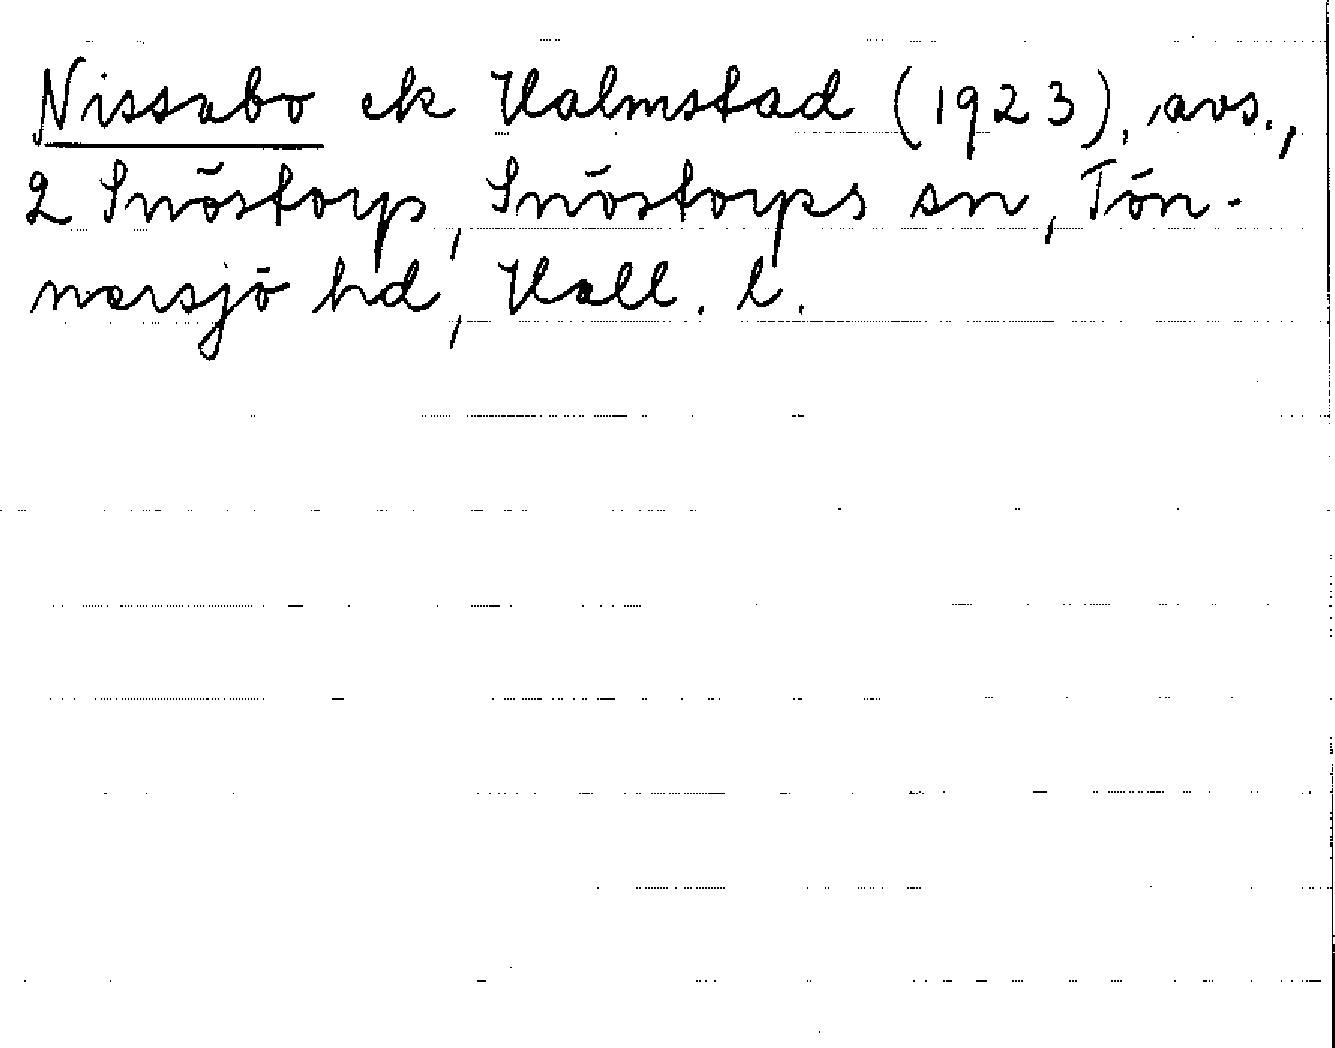 Nissabo ek Halmstad (1923), avs.,
2 Snöstorp, Snöstorps sn, Tön-
nersjö hd, Hall. l.